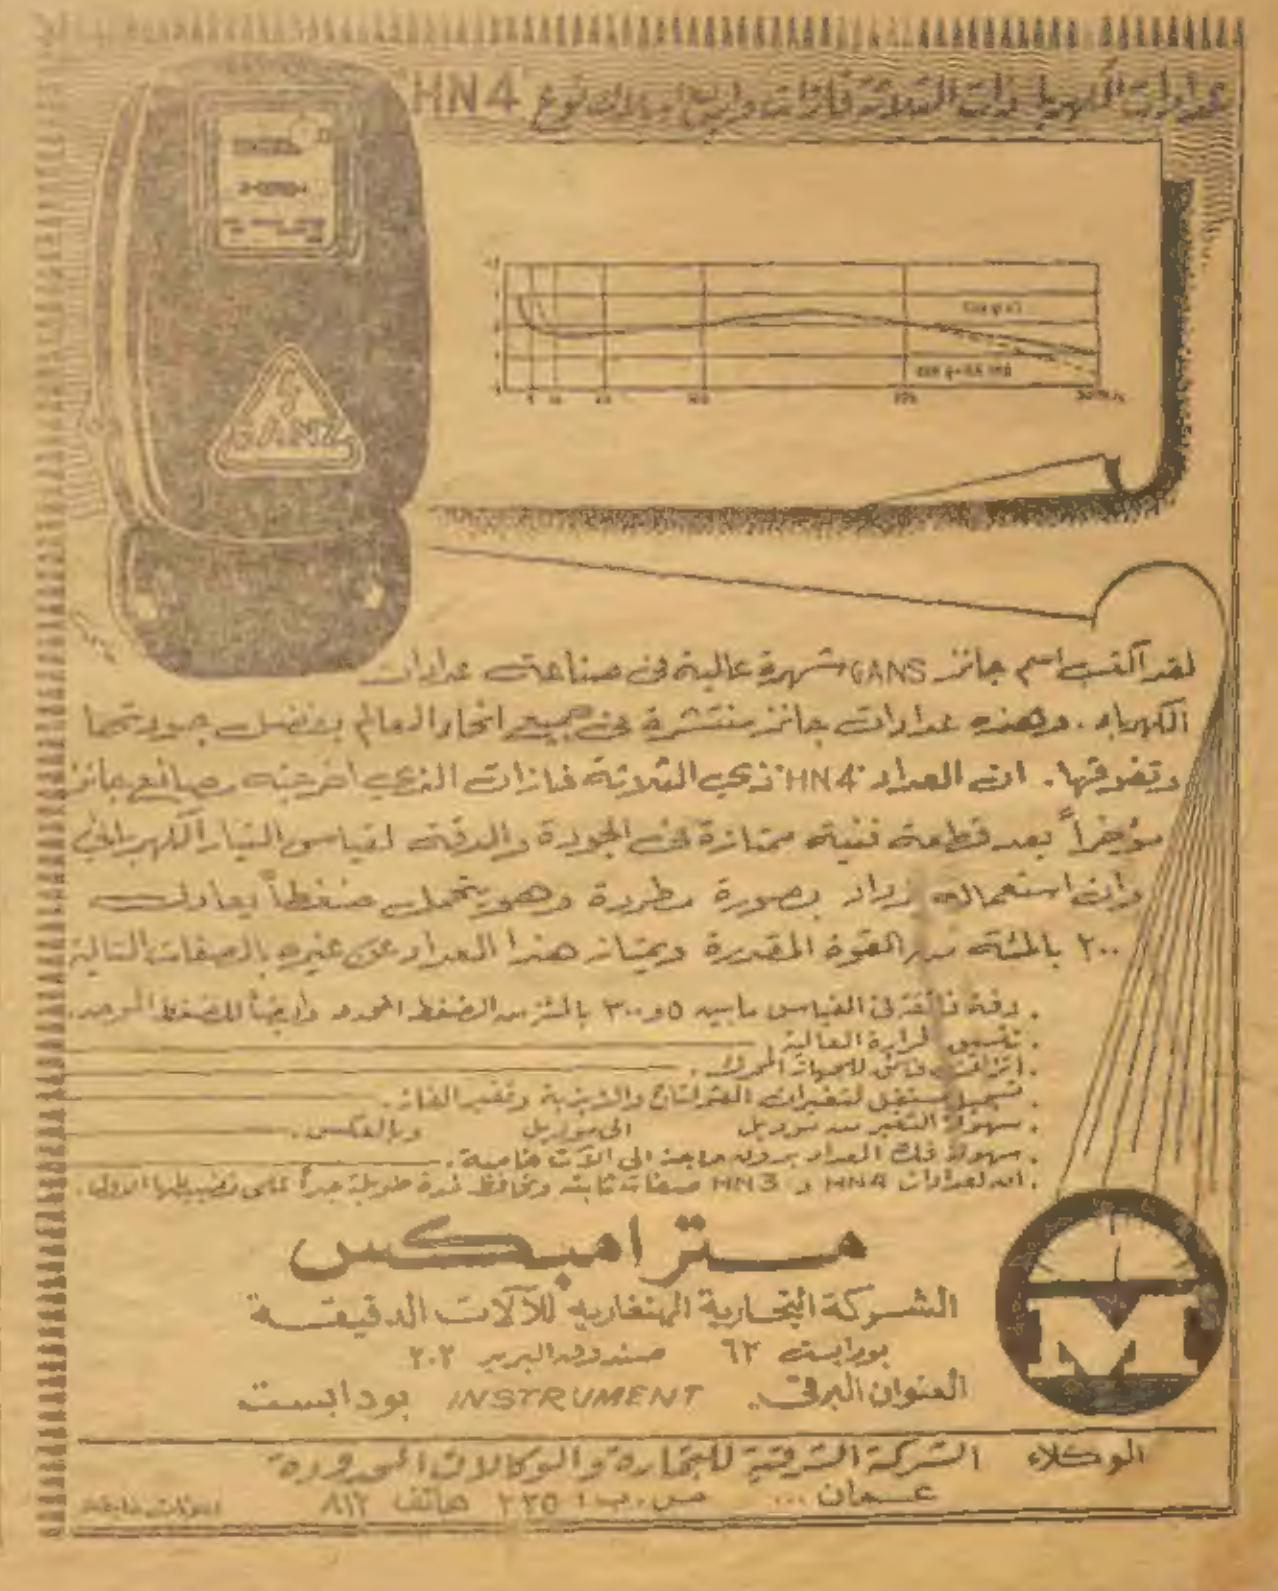 عدادات الكهرباء ذات الثلاثة فازات واربع اسلاك نوع "HN4"
GANZ
لقد اكتسب اسم جانز GANS شهرة عالية في صناعة عدادات
الكهرباء. وهذه عدادات جانز منتشرة في جميع انحاء العالم بفضل جودتها
وتفوقها. ان العداد "HN4" ذي الثلاثة فازات الذي اخرجته مصانع جانز
مؤخراً يعد قطعة فنية ممتازة في الجودة والدقة لقياس التيار الكهربائي
وان استعماله يزداد بصورة مطردة وهو يتحمل ضغطاً يعادل
٢٠٠ بالمئة من القوة المقدرة ويمتاز هذا العداد عن غيره بالصفات التالية
. دقة فائقة في القياس ما بين ٥ و ٣٠٠ بالمئة من الضغط المحدد وايضاً للضغط الموحد.
الحرارة العالية.
للجهاز المحرك.
. تسجيل مستقل لتغيرات الفولتاج والذبذبة وتغير الفاز.
. سهولة التغير من موديل الى موديل وبالعكس.
. سهولة فك العداد بدون حاجة الى آلات خاصة.
. ان لعدادات HN4 و HN3 صفات ثابتة وتحافظ لمدة طويلة جداً على تضبيطها الاولي.
مترامبكس
الشركة التجارية الهنغارية للآلات الدقيقة
بودابست ٦٢ صندوق البريد ٢٠٢
العنوان البرقي.. INSTRUMENT بودابست
M
الوكلاء الشركة الشرقية للتجارة والوكالات المحدودة
عمان ... ص.ب: ٢٢٥ هاتف ٨١٢